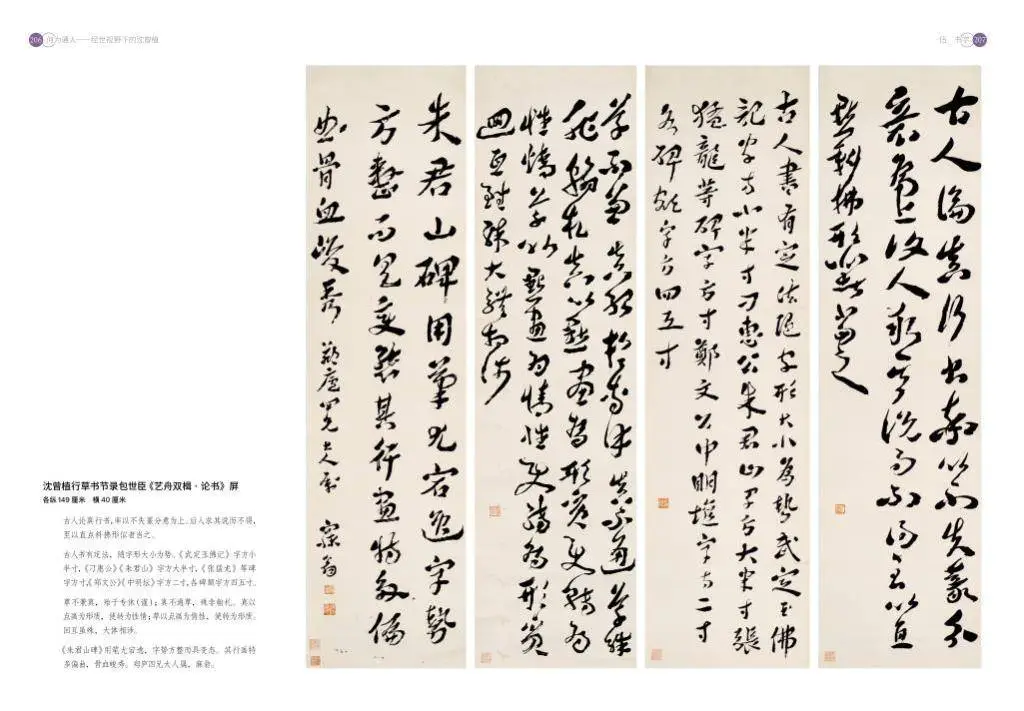 206 何为通人——经世视野下的沈曾植
伍 书学 207
古人論真行书率以不失篆分
意為上後人求其説而不得至以直
點斜拂形似者當之
古人書有定法随字形大小為勢武定玉佛
記字方小半寸刁惠公朱君山字方大半寸張
猛龍等碑字方寸鄭文公中明壇字方二寸
各碑额字方四五寸
草不兼真殆於専谨真不通草殊
非翰札真以點畫為形質使轉為
性情草以點畫為情性使轉為形質
迴互雖殊大體相涉
朱君山碑用筆尤宕逸字勢
方整而具变態其行畫特多偏
曲骨血峻秀 四兄大人属 寐翁
沈曾植行草书节录包世臣《艺舟双楫·论书》屏
各纵149厘米 横40厘米
古人论真行书，率以不失篆分意为上。后人求其说而不得，
至以直点斜拂形似者当之。
古人书有定法，随字形大小为势。《武定玉佛记》字方小
半寸，《刁惠公》《朱君山》字方大半寸，《张猛龙》等碑
字方寸，《郑文公》《中明坛》字方二寸，各碑额字方四五寸。
草不兼真，殆于专休（谨）；真不通草，殊非翰札。真以
点画为形质，使转为性情；草以点画为情性，使转为形质。
回互虽殊，大体相涉。
《朱君山碑》用笔尤宕逸，字势方整而具变态。其行画特
多偏曲，骨血峻秀。郑庐四兄大人属，寐翁。